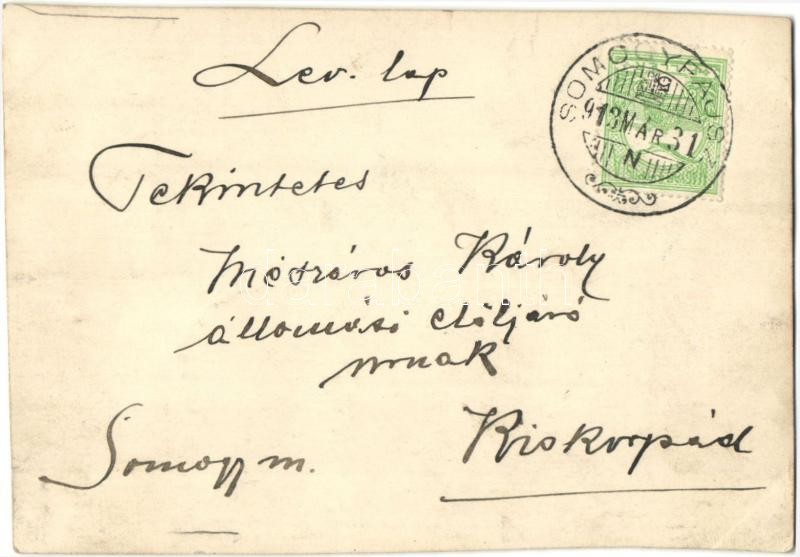 Lev. lap
SOMOGYFAJSZ
913 MÁR 31
N
Tekintetes
Mészáros Károly
állomási elöljáró
urnak
Kiskorpád
Somogy m.